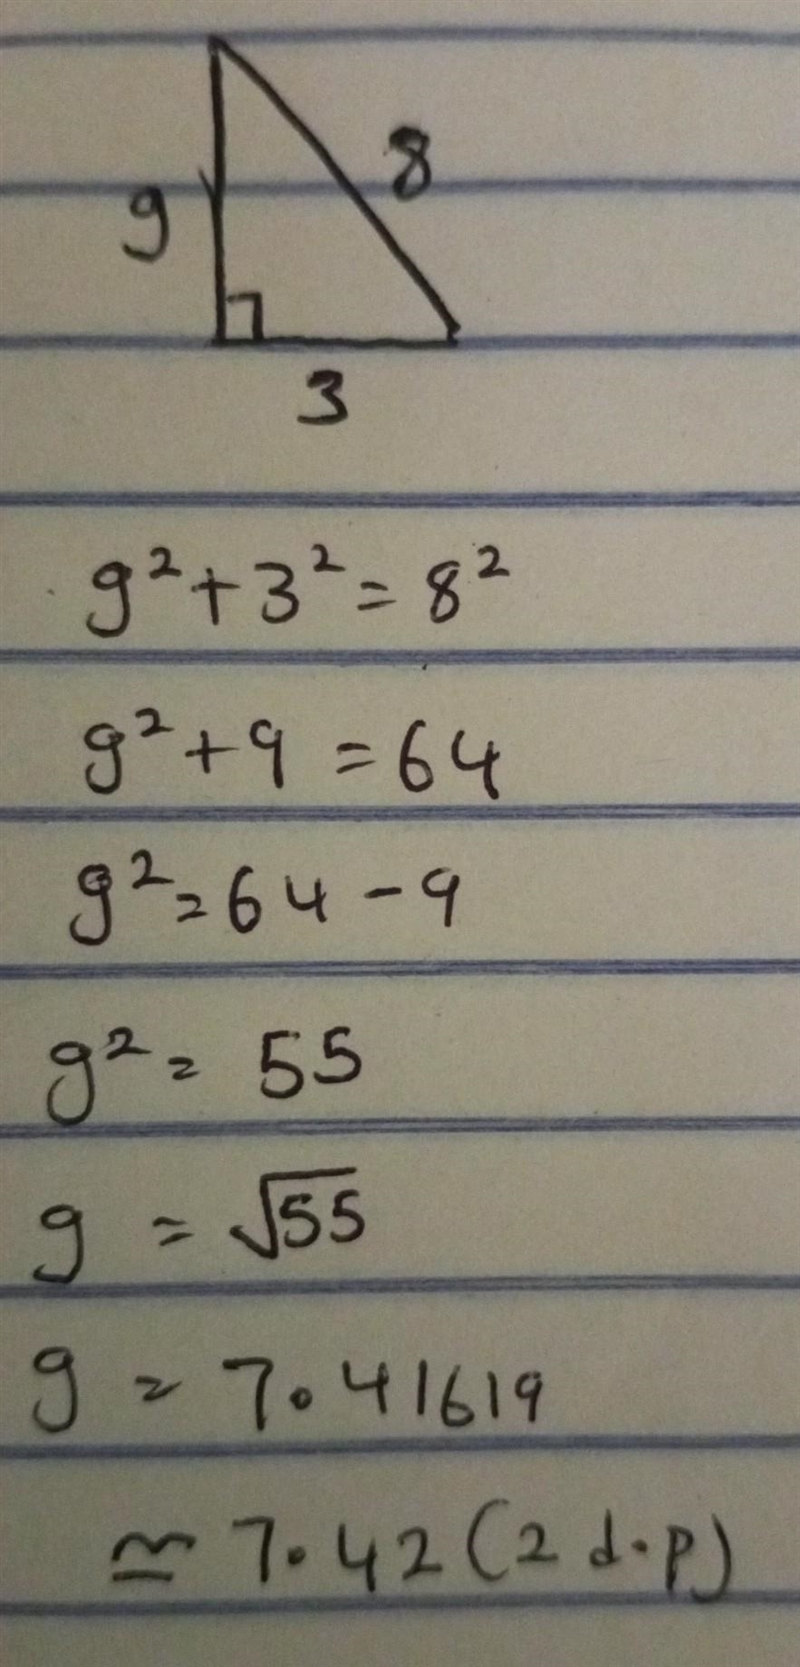 8
g
3
g² + 3² = 8²
g² + 9 = 64
g² = 64 - 9
g² = 55
g = √55
g = 7.41619
≃ 7.42 (2 d.p)